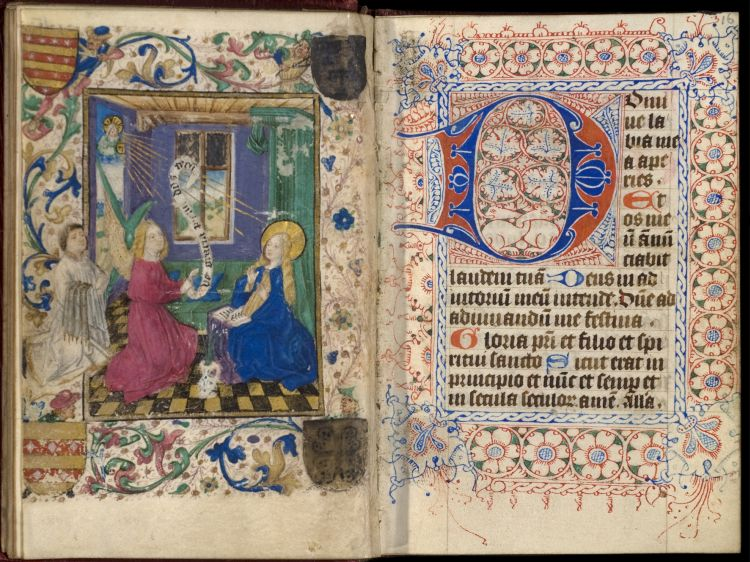 dns tecū
16
Domi
ne la
bia me
a ape
ries.
Et
os me
ū annū
ciabit
laudem tuā. Deus in ad
iutoriū meū intende. Dn̄e ad
adiuuandū me festina.
Gloria pr̄i et filio et spi
ritui sancto Sicut erat in
principio et nūc et semp et
in secula seculor amē.